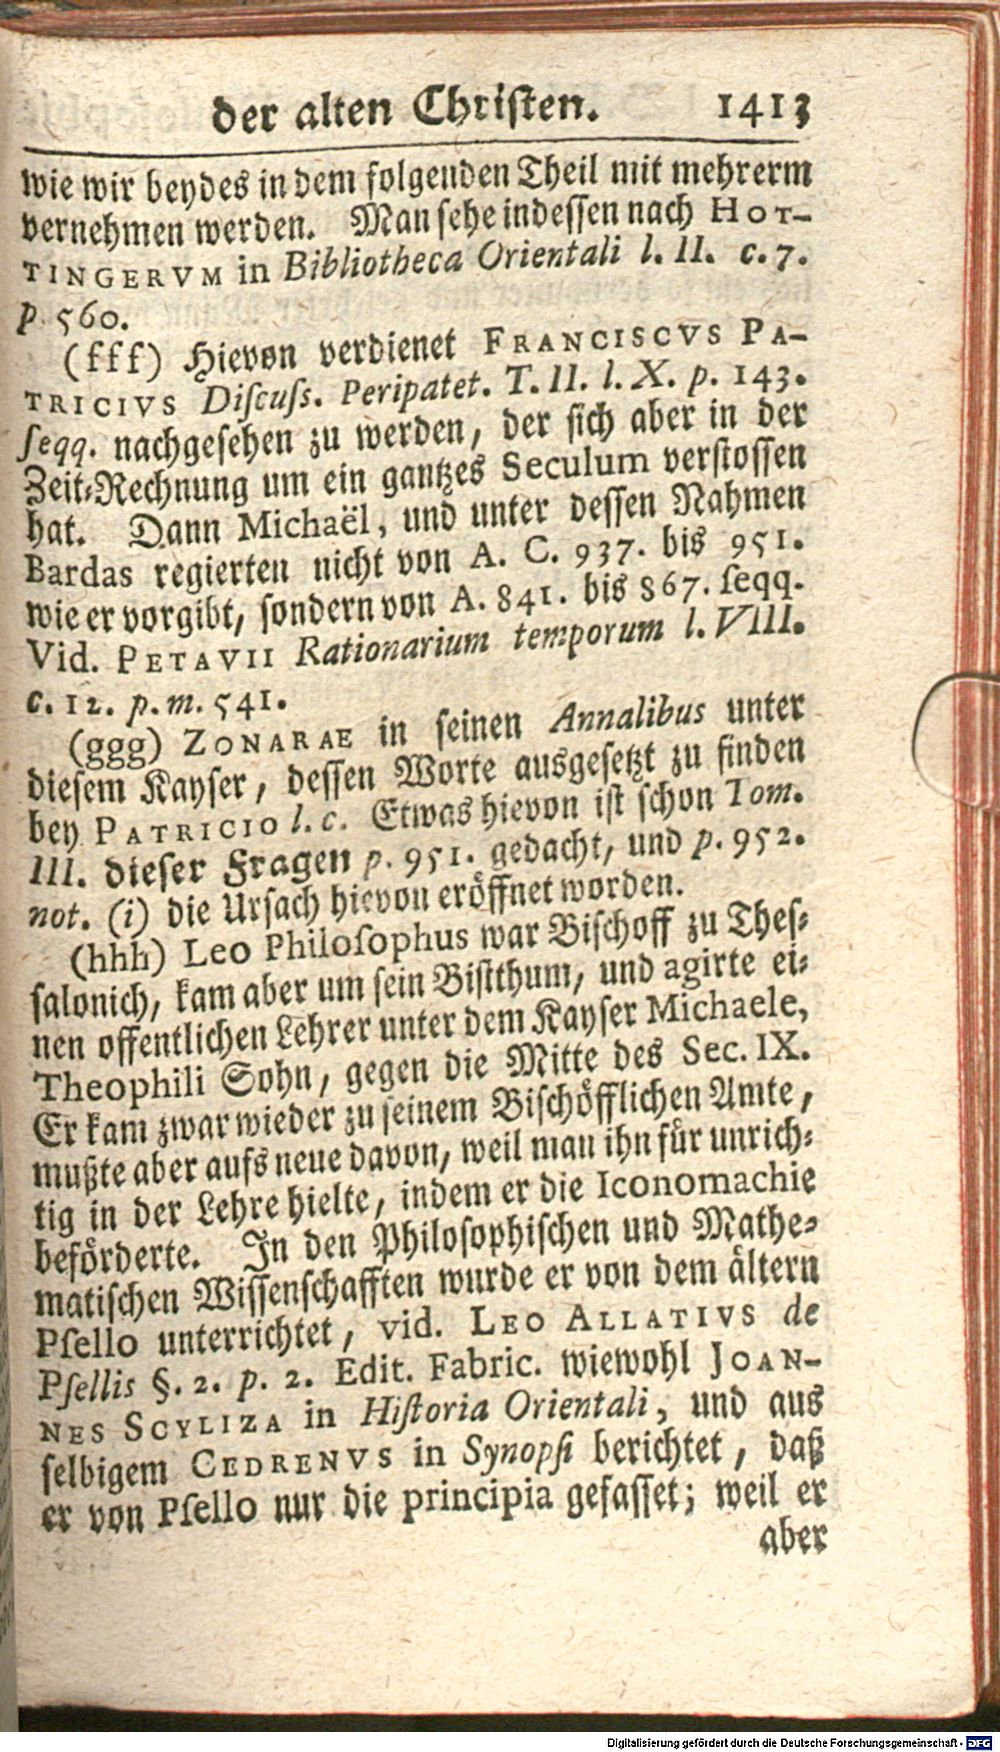 der alten Christen. 1413
wie wir beydes in dem folgenden Theil mit mehrerm
vernehmen werden. Man sehe indessen nach HOT-
TINGERVM in Bibliotheca Orientali l. II. c. 7.
p. 560.
(fff) Hievon verdienet FRANCISCVS PA-
TRICIVS Discuss. Peripatet. T. II. l. X. p. 143.
seqq. nachgesehen zu werden, der sich aber in der
Zeit-Rechnung um ein gantzes Seculum verstossen
hat. Dann Michaël, und unter dessen Nahmen
Bardas regierten nicht von A. C. 937. bis 951.
wie er vorgibt, sondern von A. 841. bis 867. seqq.
Vid. PETAVII Rationarium temporum l. VIII.
c. 12. p. m. 541.
(ggg) ZONARAE in seinen Annalibus unter
diesem Kayser, dessen Worte ausgesetzt zu finden
bey PATRICIO l. c. Etwas hievon ist schon Tom.
III. dieser Fragen p. 951. gedacht, und p. 952.
not. (i) die Ursach hievon eröffnet worden.
(hhh) Leo Philosophus war Bischoff zu Thes-
salonich, kam aber um sein Bistthum, und agirte ei-
nen offentlichen Lehrer unter dem Kayser Michaele,
Theophili Sohn, gegen die Mitte des Sec. IX.
Er kam zwar wieder zu seinem Bischöfflichen Amte,
mußte aber aufs neue davon, weil man ihn für unrich-
tig in der Lehre hielte, indem er die Iconomachie
beförderte. In den Philosophischen und Mathe-
matischen Wissenschafften wurde er von dem ältern
Psello unterrichtet, vid. LEO ALLATIVS de
Psellis §. 2. p. 2. Edit. Fabric. wiewohl JOAN-
NES SCYLIZA in Historia Orientali, und aus
selbigem CEDRENVS in Synopsi berichtet, daß
er von Psello nur die principia gefasset; weil er
aber
Digitalisierung gefördert durch die Deutsche Forschungsgemeinschaft - DFG